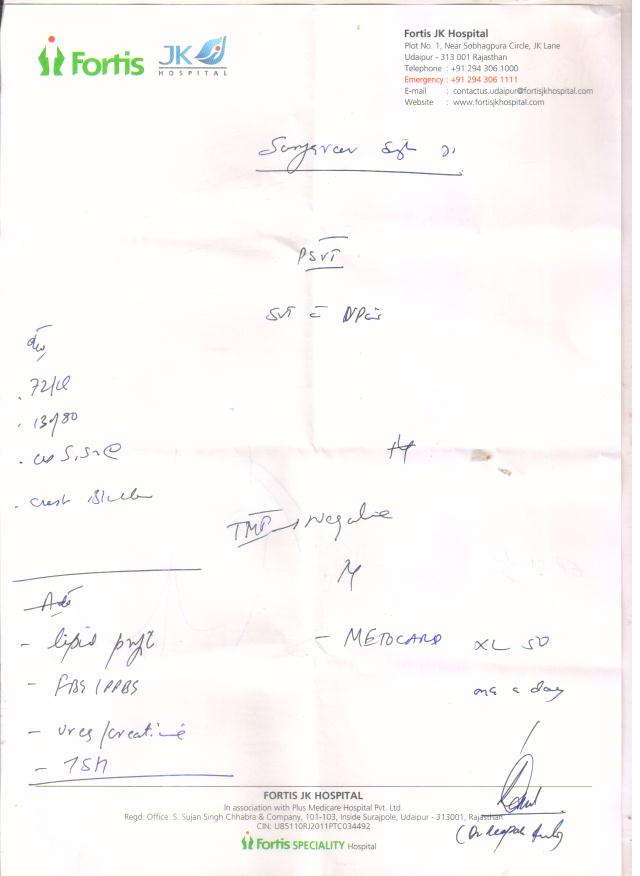 Fortis
JK
HOSPITAL
Fortis JK Hospital
Plot No. 1, Near Sobhagpura Circle, JK Lane
Udaipur - 313 001 Rajasthan
Telephone : +91 294 306 1000
Emergency : +91 294 306 1111
E-mail : contactus.udaipur@fortisjkhospital.com
Website : www.fortisjkhospital.com
PSVT
SVT
. 72/
. 130/80
. Chest
TMT → Negative
Adv
- lipid profile
- METOCARD XL 50
- FBS / PPBS
one a day
- urea / creatinine
- TSH
FORTIS JK HOSPITAL
In association with Plus Medicare Hospital Pvt. Ltd.
Regd. Office: S. Sujan Singh Chhabra & Company, 101-103, Inside Surajpole, Udaipur - 313001, Rajasthan
CIN: U85110RJ2011PTC034492
(Dr
Fortis SPECIALITY Hospital